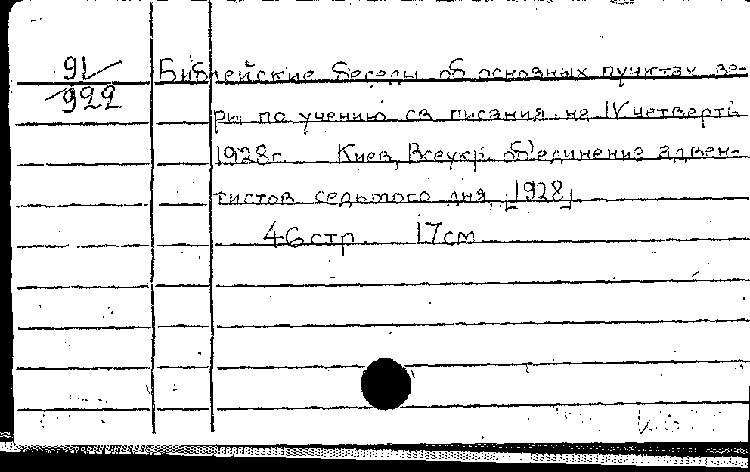 91/ Библейские беседы об основных пунктах ве-
922
ры по учению св. писания на IV четверть
1928г. Киев, Всеукр. об'единение адвен-
тистов седьмого дня, [1928].
46 стр. 17 см.